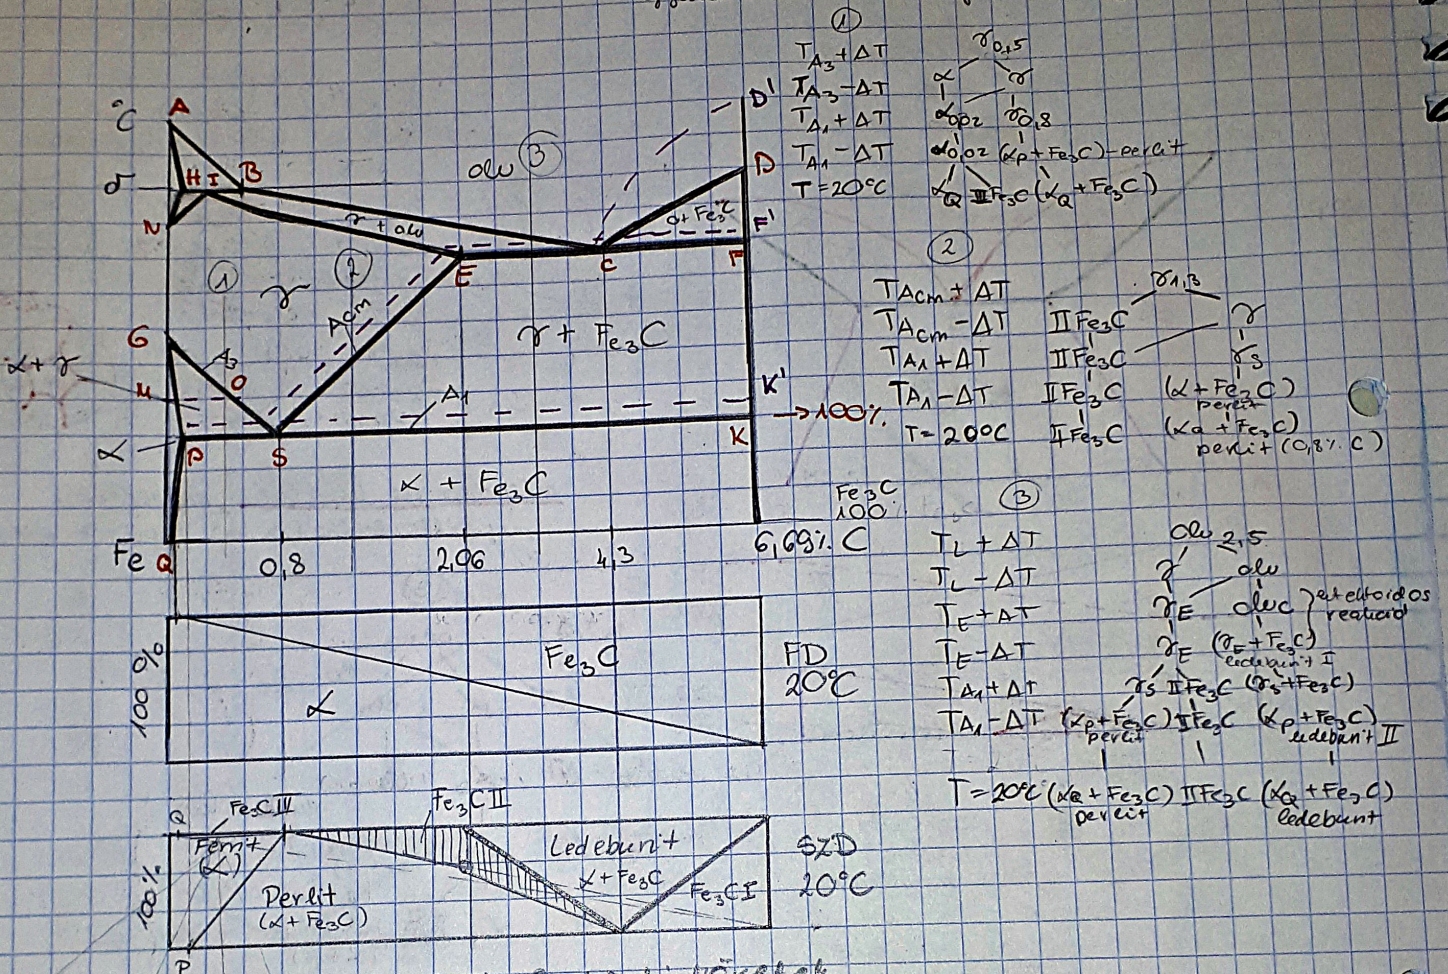 °C
A
H I B
δ
N
olv ③
D'
D
γ + olv
o+Fe₃C
F'
E
C
F
①
②
γ
Acm
γ + Fe₃C
G
α+γ
A₃
M
O
A₁
K'
→100%
K
α
P
S
α + Fe₃C
Fe₃C
100
Fe Q
0,8
2,06
4,3
6,69% C
100 %
Fe₃C
α
FD
20°C
Q
Fe₃C III
Fe₃C II
Ferrit
(α)
Ledeburit
α+Fe₃C
Perlit
(α+Fe₃C)
Fe₃C I
100%
P
SZD
20°C
①
T A₃ + ΔT γ 0,5
T A₃ − ΔT α γ
T A₁ + ΔT α 0,02 γ 0,8
T A₁ − ΔT α 0,02 (αp + Fe₃C) - perlit
T = 20°C αQ III Fe₃C (αQ + Fe₃C)
②
T Acm + ΔT γ 1,3
T Acm − ΔT II Fe₃C γ
T A₁ + ΔT II Fe₃C γs
T A₁ − ΔT II Fe₃C (α + Fe₃C)
perlit
T = 20°C II Fe₃C (αQ + Fe₃C)
perlit (0,8% C)
③
T L + ΔT olv 2,5
T L − ΔT γ olv
T E + ΔT γE olvc
T E − ΔT γE (γE + Fe₃C)
ledeburit I
T A₁ + ΔT γs II Fe₃C (γs + Fe₃C)
T A₁ − ΔT (αp + Fe₃C) II Fe₃C (αp + Fe₃C)
perlit ledeburit II
T = 20°C (αQ + Fe₃C) II Fe₃C (αQ + Fe₃C)
perlit ledeburit